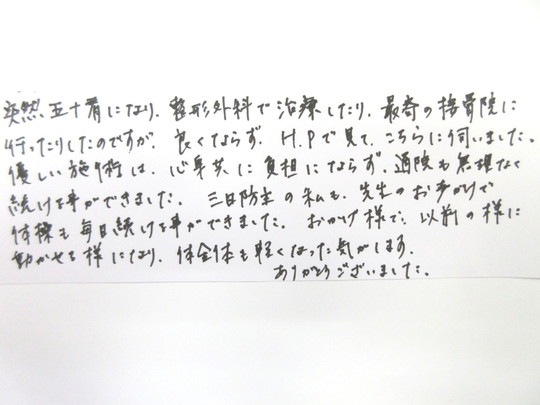 突然五十肩になり、整形外科で治療したり、最寄の接骨院に
行ったりしたのですが、良くならず、H.Pで見て、こちらに伺いました。
優しい施術は、心身共に負担にならず、通院も無理なく
続ける事ができました。三日防主の私も、先生のお声がけで
体操も毎日続ける事ができました。おかげ様で、以前の様に
動かせる様になり、体全体も軽くなった気がします。
ありがとうございました。